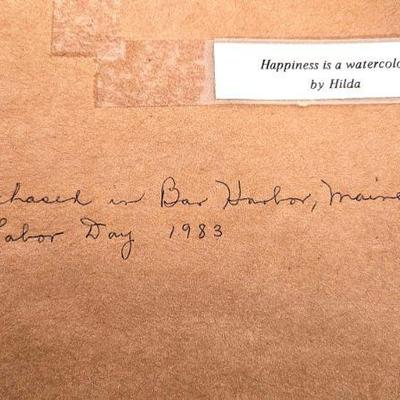 Happiness is a watercolo
by Hilda
chased in Bar Harbor, Maine
Labor Day 1983